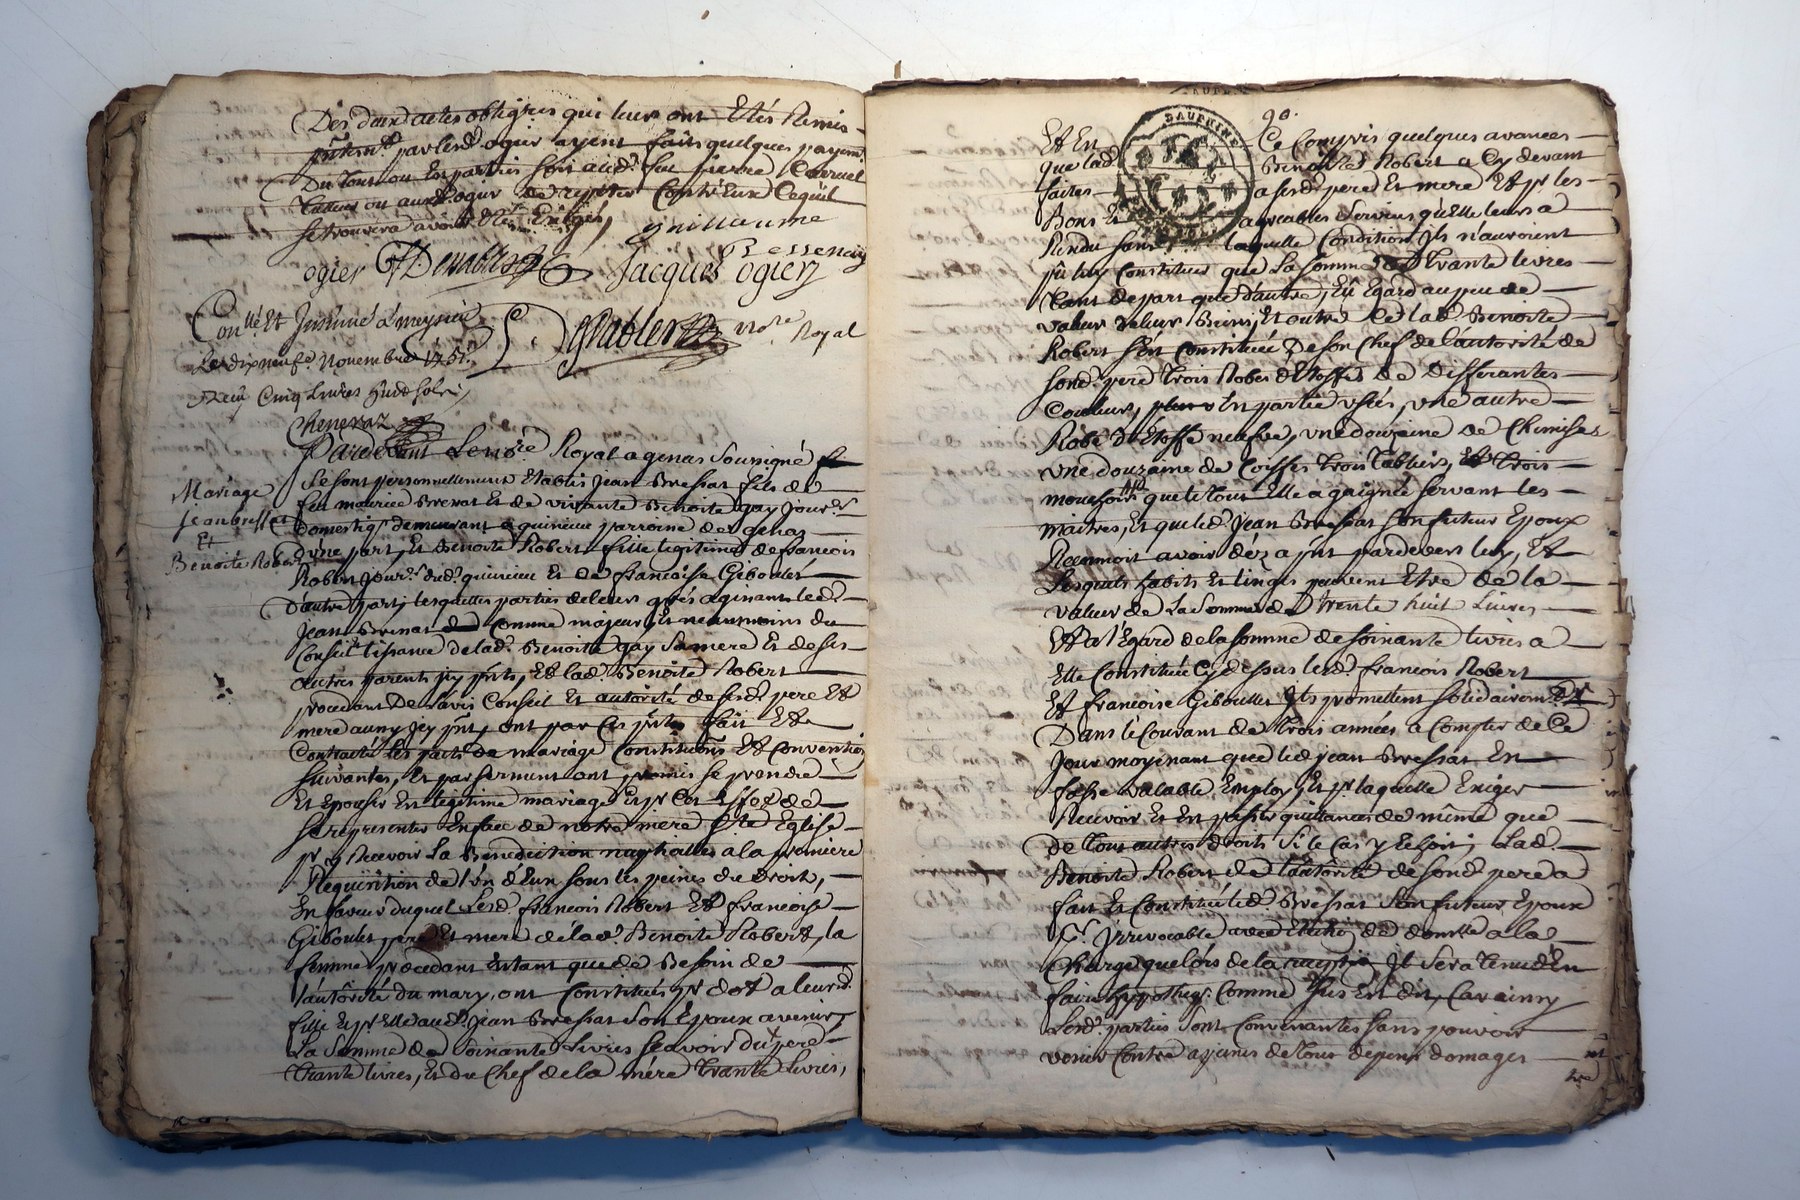 Des deux actes obligéus qui leurs ont Etés Remis
pntemt. par lesd. ogier ayent faits quelques payemt.
Du Tout ou En partie soit aud. feu pierre Carruel
ou auxd. ogier de repeter Contr'Eux Cequil
se trouvera avoir Eté Exigés,
guillaume
Bessenay
ogier Jacques ogier
Conllé Et Insinué a meysieu
Le dix neufe. Novembre
Desrabler Nore. Royal
Reçu Cinq Livres
Cheneraz
Pardevant Le nore. Royal a genas Soussigné
Se sont personnellement Etablis Jean Bressat fils de
feu maurice Bressat Et de vivante Benoite gay Jourr.
Mariage
jean bressat
Et
Benoite Robert
Domestiq. demeurant a quincieu parroisse de genas
D'une part, Et Benoite Robert fille legitime de francois
Robert Jourr. dud. quincieu Et de francoise Giboulet
D'autre part, lesquelles parties de leurs grés agissants led.
Jean Bressat Comme majeur Et neanmoins du
Conseil Lissance de lad. Benoite gay Sa mere Et de ses
autres parents jcy pnts, Et lad. Benoite Robert
procedant De l'avis Conseil Et autorité de sesd. pere Et
mere aussy jcy pnts, ont par Ces pntes fait Et
Contracté les pacts de mariage Constitutions Et Conventions
suivantes, Et par serment ont promis se prendre
Et Epouser En legitime mariage Et pr Cet Effet de
se representer En face de notre mere Ste Eglise
pr y Recevoir La Benediction nuptialle a la premiere
Requisition de l'un d'Eux sous les peines du Droit,
En faveur duquel Lesd. francois Robert Et francoise
Giboulet pere Et mere de lad. Benoite Robert, la
femme procedant Entant que de Besoin de
l'autôrité du mary, ont Constitués pr dot a leurd.
fille Et pr Elle aud. Jean Bressat Son Epoux avenir,
La Somme de Soixante Livres scavoir du pere
Trante livres, Et du Chef de la mere Trante Livres,
90.
DAUPHINE
Et En Ce Compris quelques avances
que lad. Benoite Robert a Cy devant
faites a sesd. pere Et mere Et pr les
Bons Et agreables Services qu'Elle leurs a
Rendu sans laquelle Condition Ils n'auroient
pû luy Constituer que La Somme de Trante livres
Tant de part que d'autre, Eû Egard au peu de
valeur de leur Biens, Et outre Ce lad. Benoite
Robert s'est Constituée De son Chef de l'autorité de
sond. pere Trois Robes d'Etoffes de Differantes
Couleurs, En partie usées, une autre
Robe D'Etoffe neufve, une douzaine de Chemises
une douzaine de Coiffes Trois Tabliers, Et Trois
mouchoirs que le Tout Elle a gaignée servant les
maitres, Et que led. Jean Bressat Son futur Epoux
Reconnoit avoir déz a pnt pardevers luy, Et
lesquels habits Et linges peuvent Etre de la
valeur de La Somme de Trente huit Livres
Et a l'Egard de la somme de soixante livres a
Elle Constituée Cy dessus lesd. francois Robert
Et francoise Giboullet Ils promettent solidairemt.
Dans le Courant de Trois années a Compter de Ce
Jour moyenant que led. jean Bressat En
fasse valable Employ, Et pr laquelle Exiger
Recevoir Et En passer quittance de même que
de Tous autres droits Si le Cas y Echoit, Lad.
Benoite Robert de l'autorité de sond. pere a
fait Et Constitué led. Bressat Son futur Epoux
Pr. Irrevocable avec Election de domlle a la
Charge que lors de la reception Il Sera Tenu d'En
faire hypotheq. Comme dessus Est dit, Car ainsy
Lesd. parties Sont Convenantes sans pouvoir
venir Contre a peines de Tous depens domages